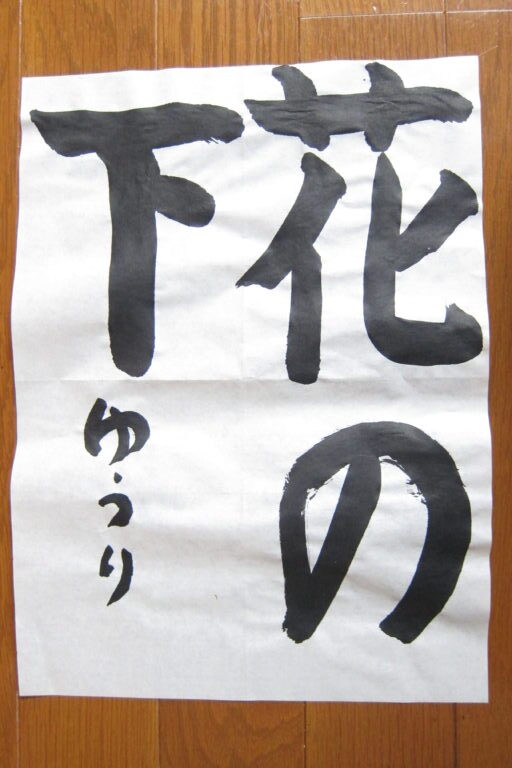 花の
下
ゆうり